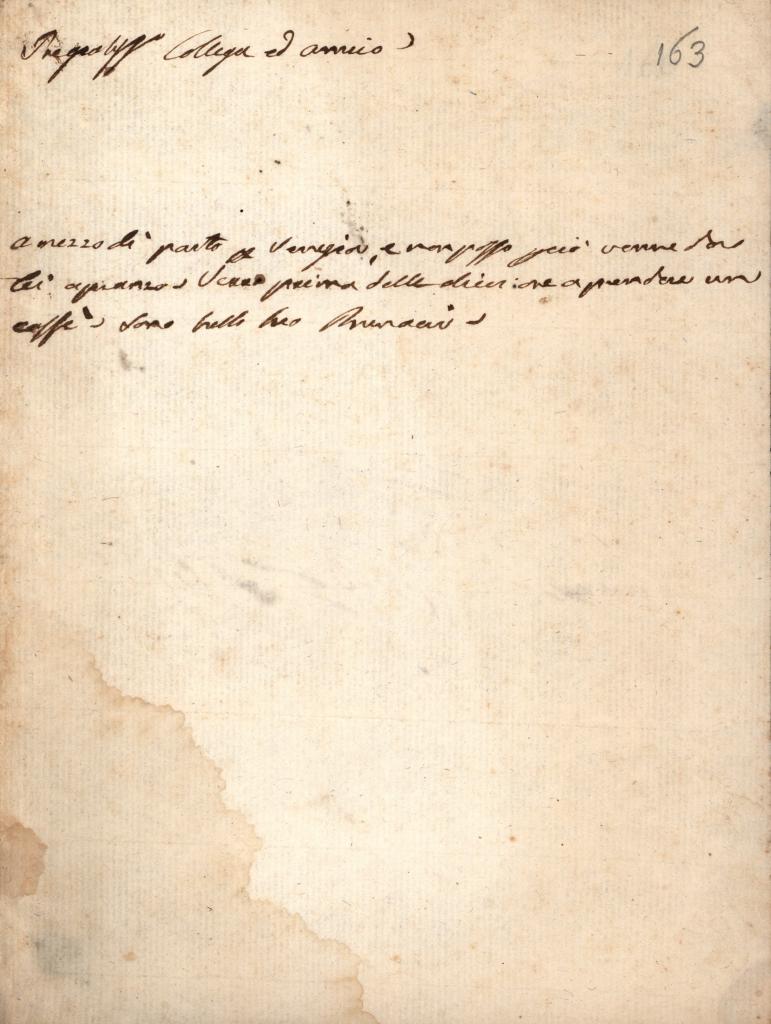 Pregiatiss.mo Collega ed amico
163
a mezzodì parto per Venezia, e non posso però venire da
lei a pranzo. Verrò prima delle a prendere un
caffè. Sono tutto suo Brunacci